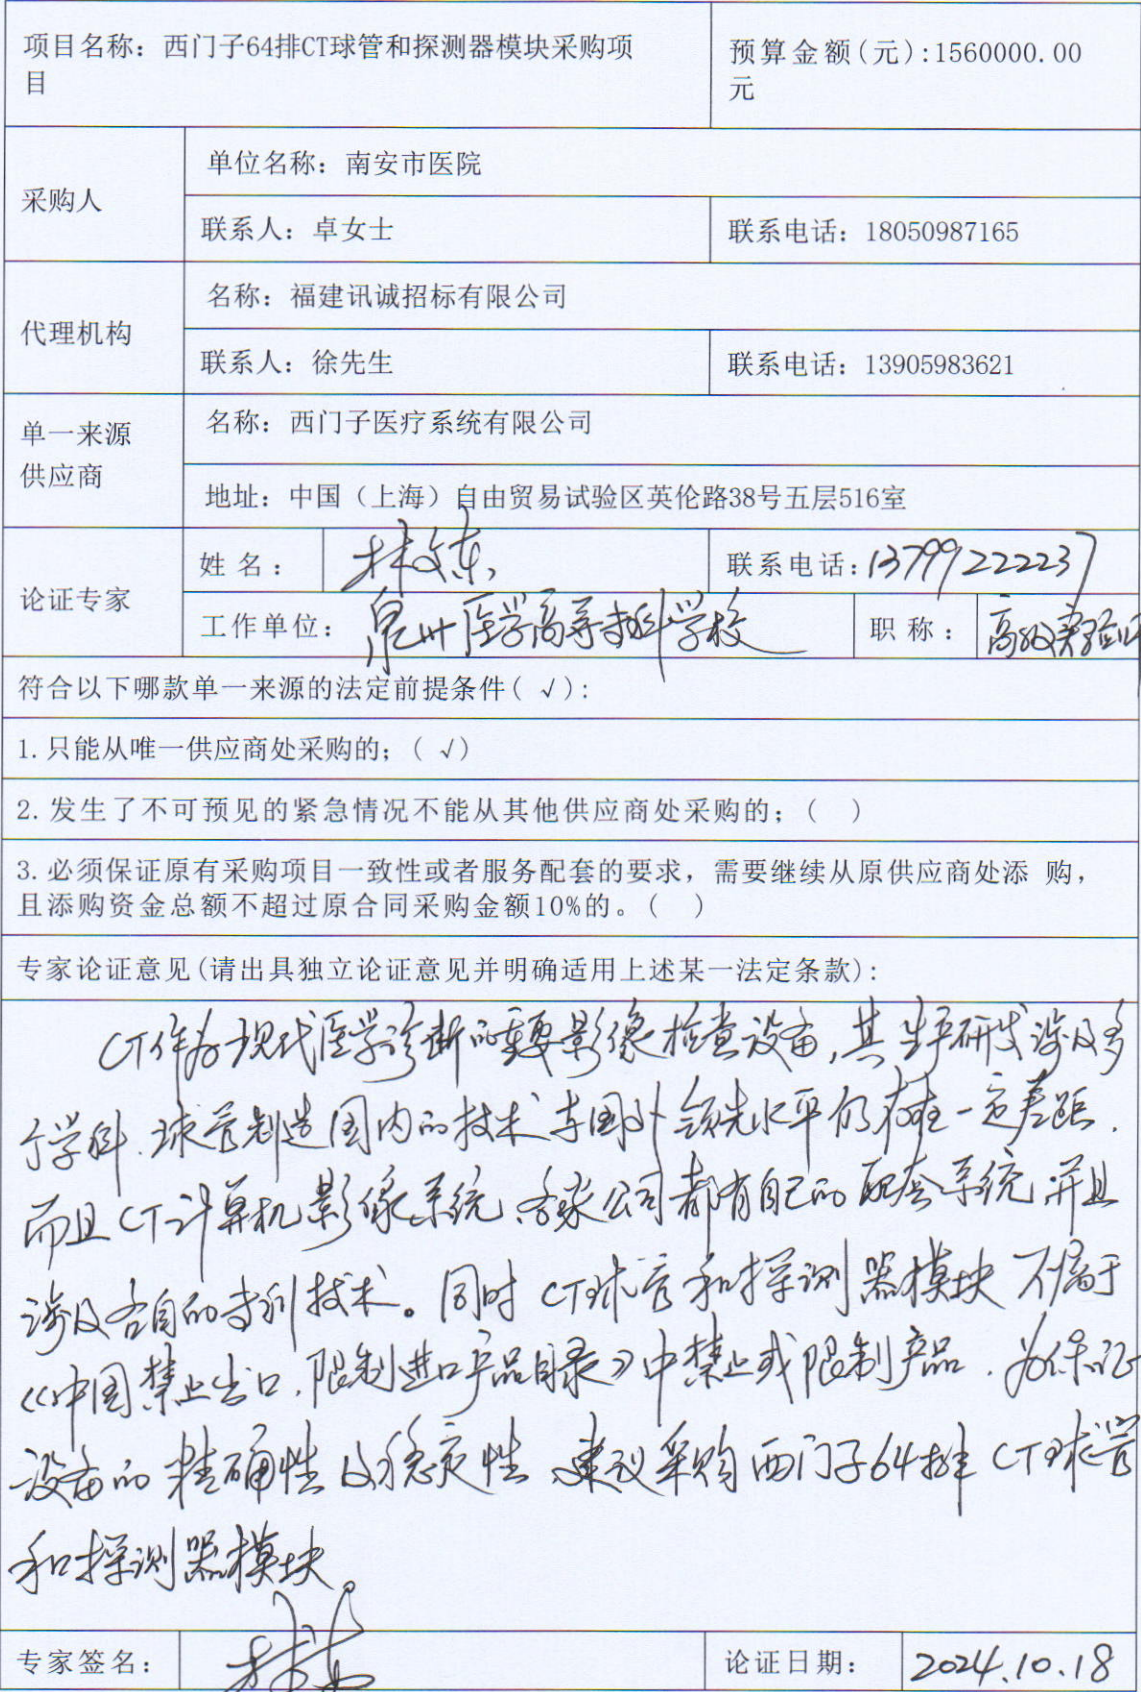 项目名称：西门子64排CT球管和探测器模块采购项
目
预算金额(元):1560000.00
元
采购人
单位名称：南安市医院
联系人：卓女士
联系电话：18050987165
代理机构
名称：福建讯诚招标有限公司
联系人：徐先生
联系电话：13905983621
单一来源
供应商
名称：西门子医疗系统有限公司
地址：中国（上海）自由贸易试验区英伦路38号五层516室
论证专家
姓名：
联系电话:13799222237
工作单位：泉州医学高等专科学校
职称：高级实验师
符合以下哪款单一来源的法定前提条件(√):
1.只能从唯一供应商处采购的；(√)
2.发生了不可预见的紧急情况不能从其他供应商处采购的；( )
3.必须保证原有采购项目一致性或者服务配套的要求，需要继续从原供应商处添 购，
且添购资金总额不超过原合同采购金额10%的。( )
专家论证意见(请出具独立论证意见并明确适用上述某一法定条款):
CT作为现代医学诊断的重要影像检查设备，其生产研发涉及多
个学科.球管制造国内的技术与国外领先水平仍存在一定差距.
而且CT计算机影像系统、各家公司都有自己的配套系统 并且
涉及各自的专利技术。同时CT球管和探测器模块不属于
《中国禁止出口.限制进口产品目录》中禁止或限制产品.为保证
设备的精确性及稳定性 建议采购西门子64排CT球管
和探测器模块。
专家签名：
论证日期：2024.10.18